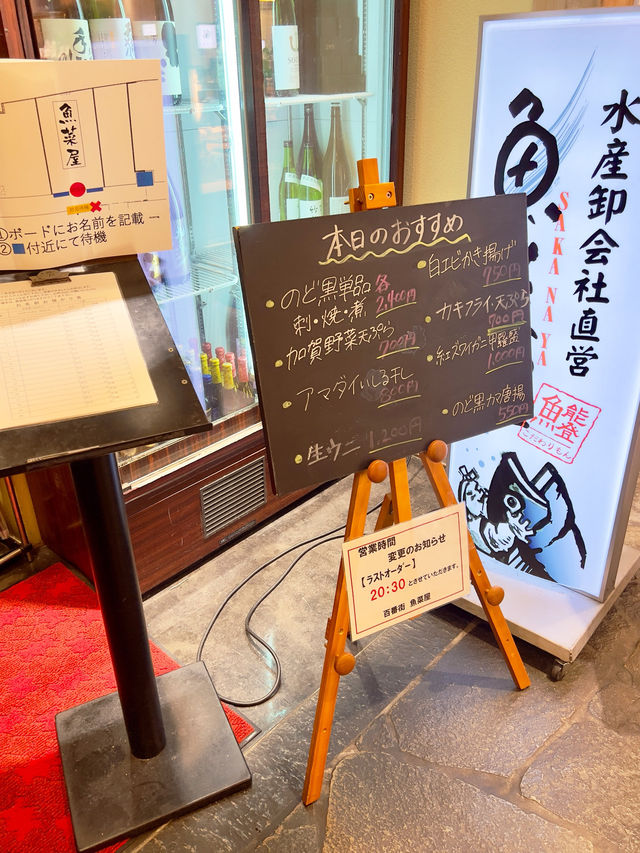 魚菜屋
①ボードにお名前を記載
②■付近にて待機
本日のおすすめ
のど黒単品 各
刺・焼・煮 2,400円
加賀野菜天ぷら
700円
アマダイいしる干し
800円
生ウニ 1,200円
白エビかき揚げ
750円
カキフライ・天ぷら
700円
紅ズワイガニ甲羅盛
1,000円
のど黒カマ唐揚
550円
営業時間
変更のお知らせ
【ラストオーダー】
20:30 とさせていただきます。
百番街 魚菜屋
水産卸会社直営
魚
SAKANAYA
能登
魚
こだわりもん